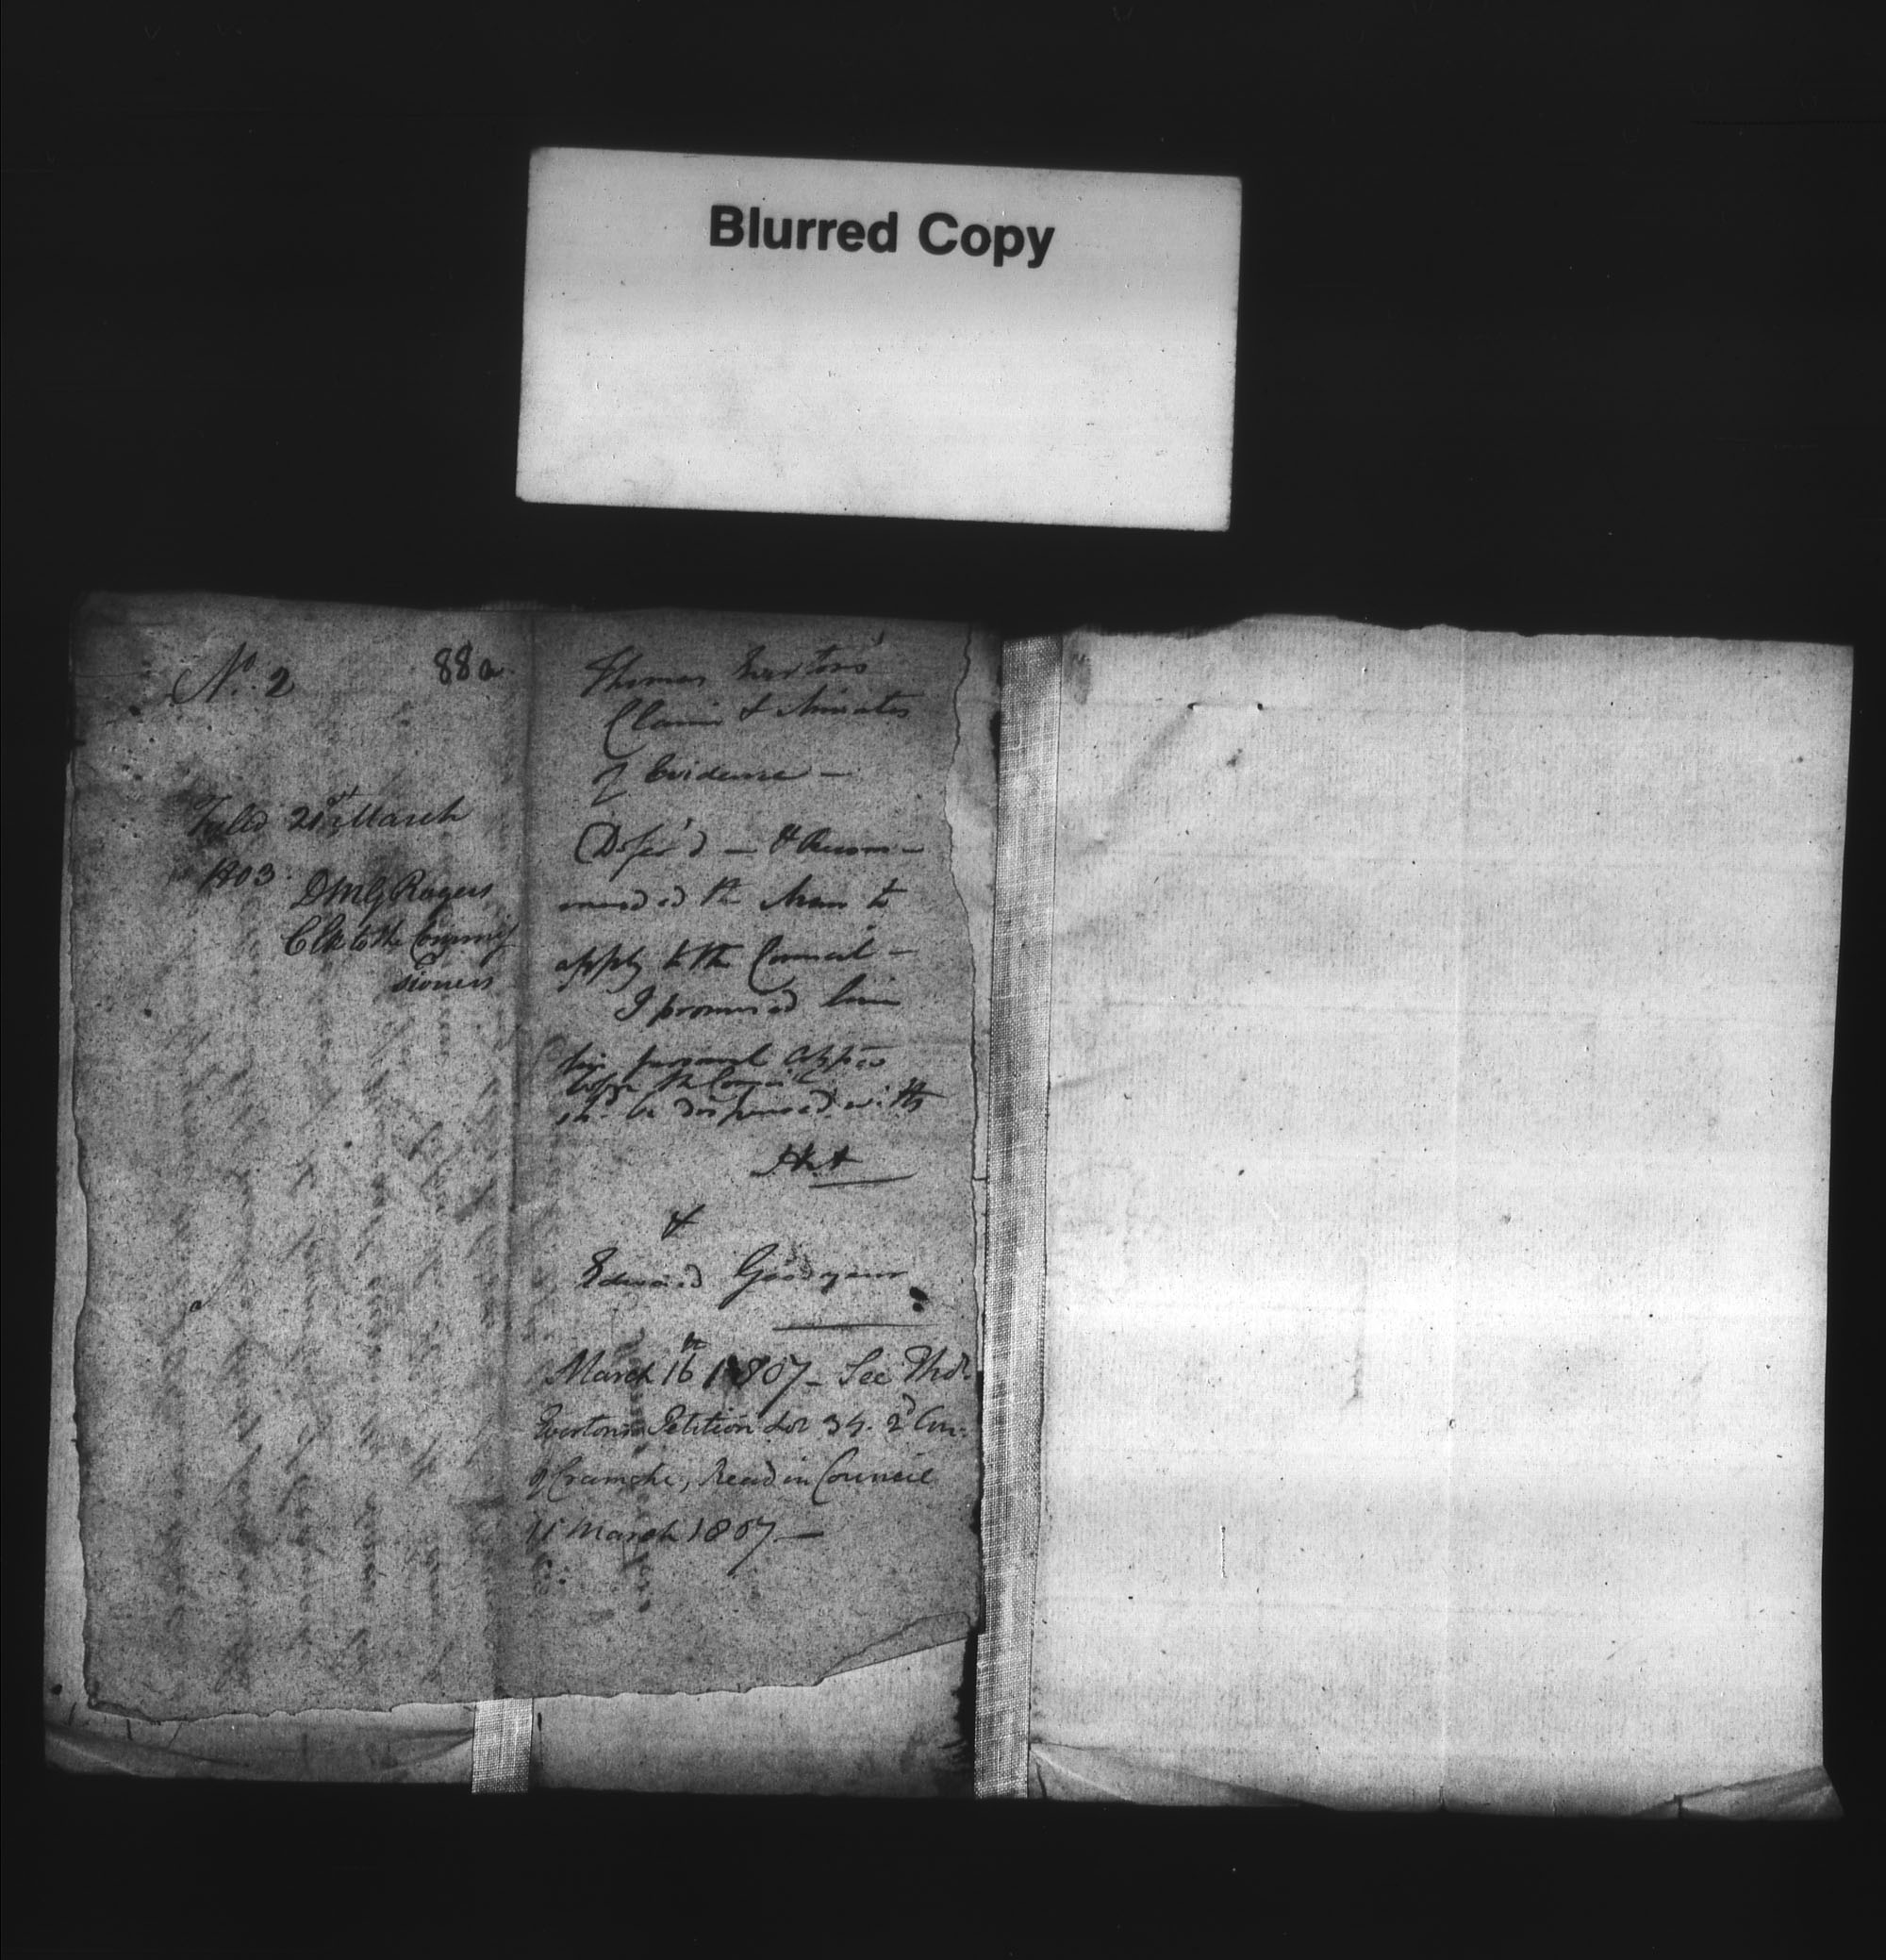 Blurred Copy
No. 2
88a
Filed 21st March
1803.
DMG Rogers
Clk to the Commis
sioners
Thomas Everton's
Claim & Minutes
of Evidence —
Defer'd — & Recom-
mended the Man to
apply to the Council —
I promised him
his personal
before the Council
shd. be dispensed with
&
Edward Goodyear
March 16th 1807 — See Thos.
Everton's Petition Lot 34. 2d Con:
of Cramahe, Read in Council
11 March 1807 —